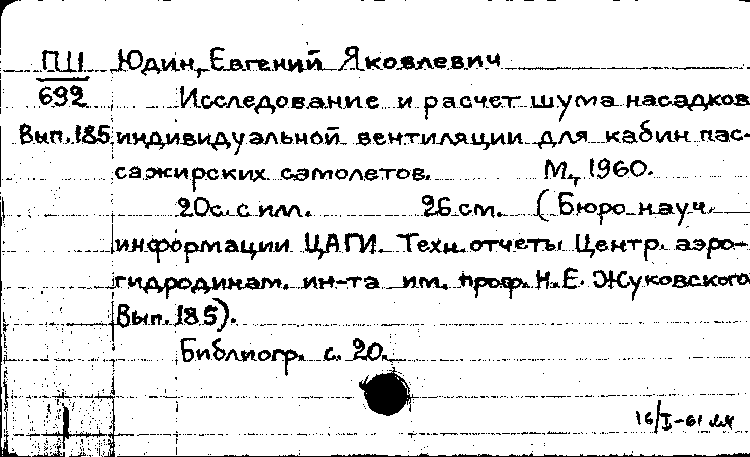 П11 Юдин, Евгений Яковлевич
692 Исследование и расчет шума насадков
Вып.185 индивидуальной вентиляции для кабин пас-
сажирских самолетов. М., 1960.
20с. с илл. 26 см. (Бюро науч.
информации ЦАГИ. Техн. отчеты Центр. аэро-
гидродинам. ин-та им. проф. Н.Е. Жуковского
Вып. 185).
Библиогр. с. 20.
16/I-61